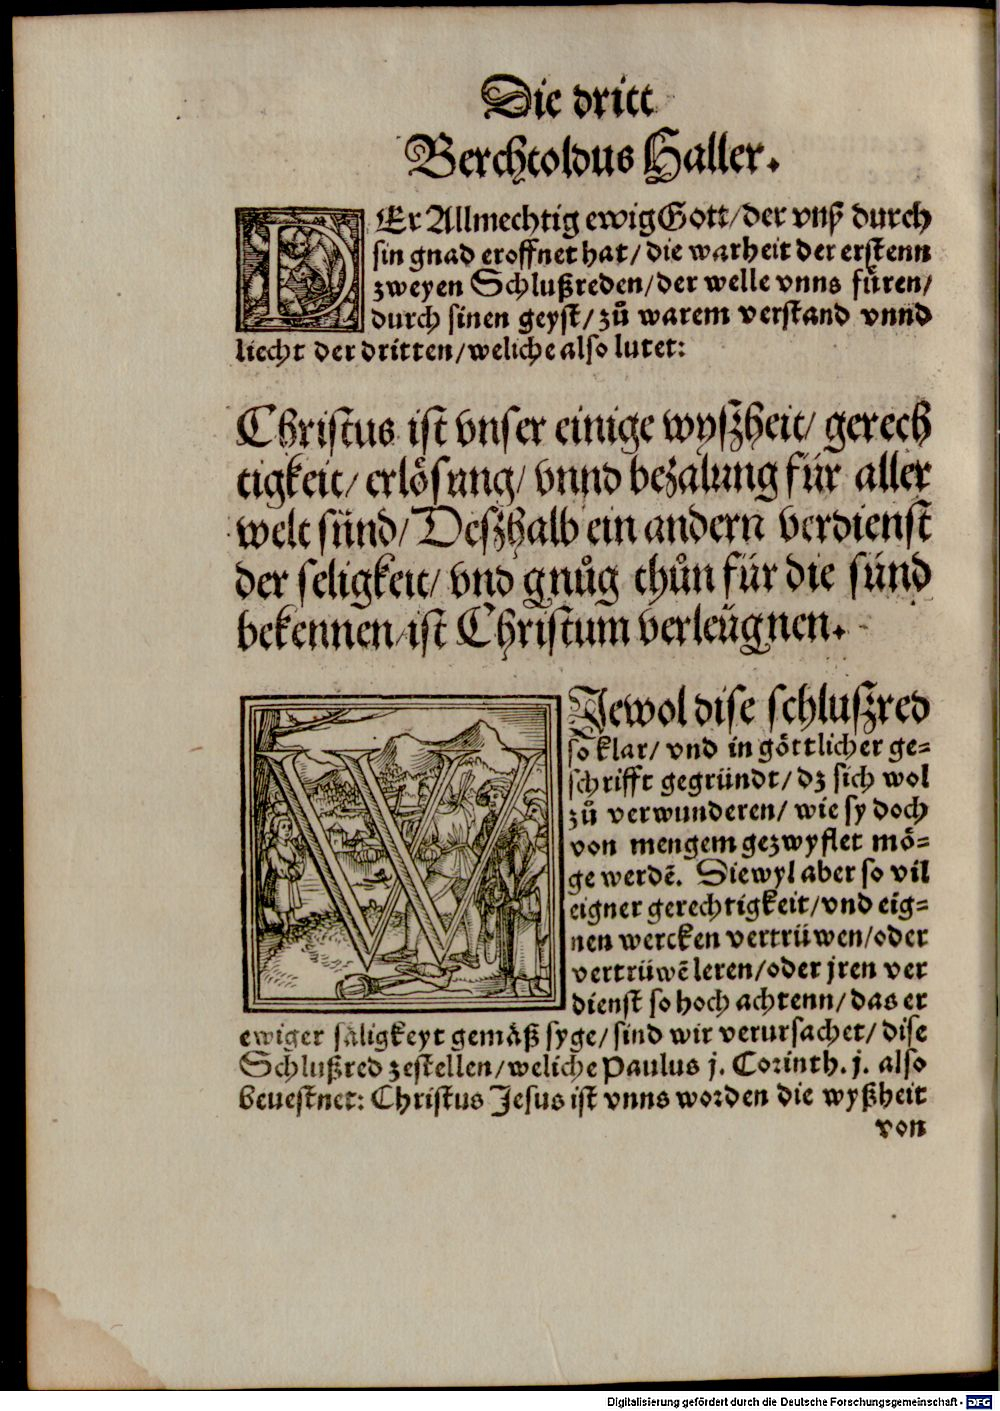 Die dritt
Berchtoldus Haller.
DEr Allmechtig ewig Gott/der vnß durch
sin gnad eroffnet hat/die warheit der erstenn
zweyen Schlußreden/der welle vnns füren/
durch sinen geyst/zů warem verstand vnnd
liecht der dritten/weliche also lutet:
Christus ist vnser einige wyßheit/ gerech
tigkeit/ erlösung/ vnnd bezalung für aller
welt sünd/ Deßhalb ein andern verdienst
der seligkeit/ vnd gnůg thůn für die sünd
bekennen/ist Christum verleügnen.
WIewol dise schlußred
so klar/ vnd in göttlicher ge=
schrifft gegründt/dz sich wol
zů verwunderen/ wie sy doch
von mengem gezwyflet mö=
ge werdē. Diewyl aber so vil
eigner gerechtigkeit/vnd eig=
nen wercken vertrüwen/oder
vertrüwē leren/oder jren ver
dienst so hoch achtenn/das er
ewiger säligkeyt gemäß syge/sind wir verursachet/dise
Schlußred zestellen/weliche Paulus j. Corinth. j. also
beuestnet: Christus Jesus ist vnns worden die wyßheit
von
Digitalisierung gefördert durch die Deutsche Forschungsgemeinschaft - DFG